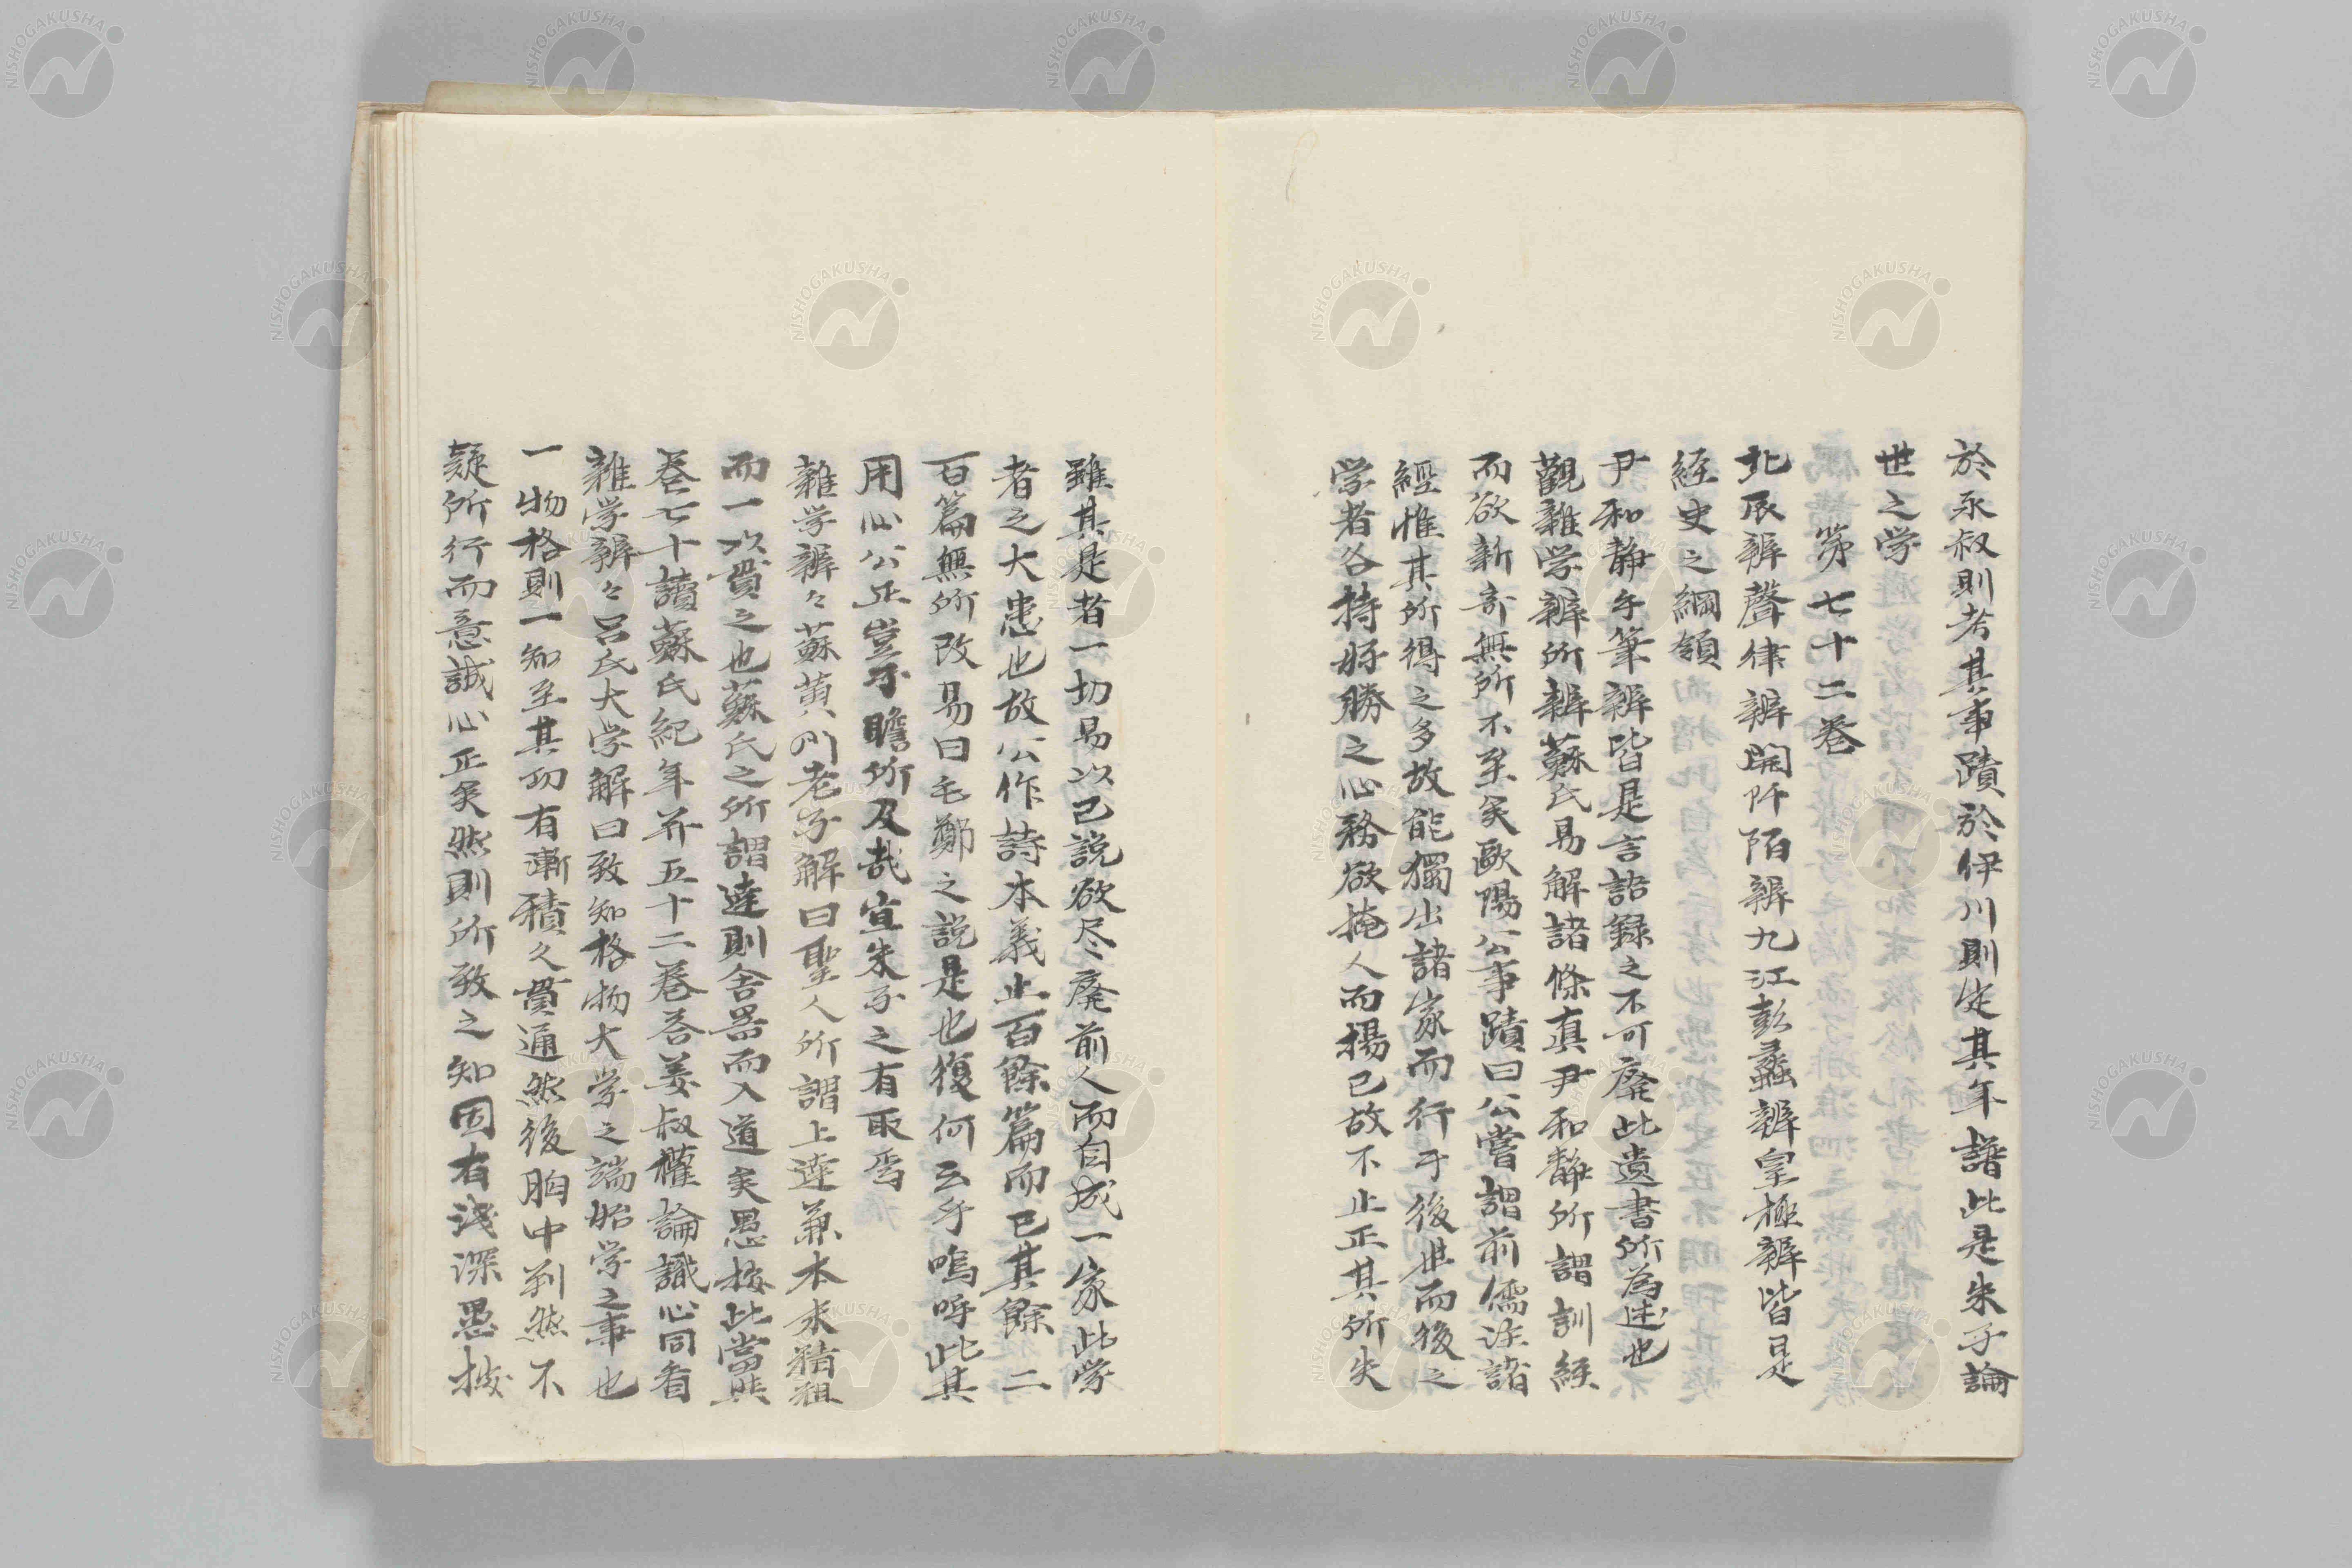 於永叔則考其事蹟於伊川則定其年譜此是朱子論
世之学
第七十二卷
北辰辨聲律辨開阡陌辨九江彭蠡辨皇極辨皆是
経史之綱領
尹和靜手筆辨皆是言語録之不可廃此遺書所為述也
觀雜学辨所辨蘇氏易解諸條真尹和静所謂訓経
而欲新竒無所不至矣歐陽公事蹟曰公嘗謂前儒注諸
經惟其所得之多故能獨出諸家而行于後世而後之
学者各持好勝之心務欲掩人而揚己故不止正其所失
雖其是者一切易以己説欲尽廃前人而自成一家此学
者之大患也故公作詩本義止百餘篇而已其餘二
百篇無所改易曰毛鄭之説是也復何云乎嗚呼此其
用心公正豈不瞻所及哉宜朱子之有取焉
雜学辨々蘇黄門老子解曰聖人所謂上達兼本末精粗
而一以貫之也蘇氏之所謂達則舎器而入道矣愚按此當與
巻七十讀蘇氏紀年并五十二巻荅姜叔權論識心同看
雜学辨々呂氏大学解曰致知格物大学之端始学之事也
一物格則一知至其功有漸積久貫通然後胸中判然不
疑所行而意誠心正矣然則所致之知固有淺深愚按